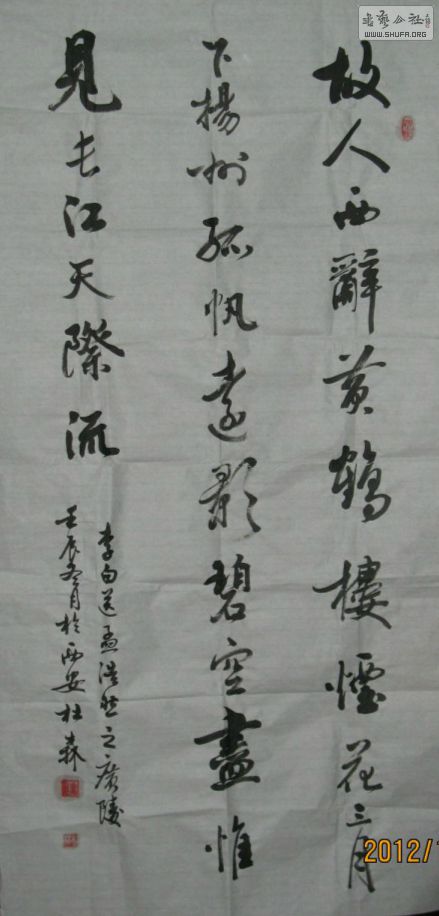 故人西辭黄鶴樓煙花三月
下揚州孤帆遠影碧空盡惟
見長江天際流
李白送孟浩然之廣陵
壬辰冬月於西安杜森
WWW.SHUFA.ORG
2012/1